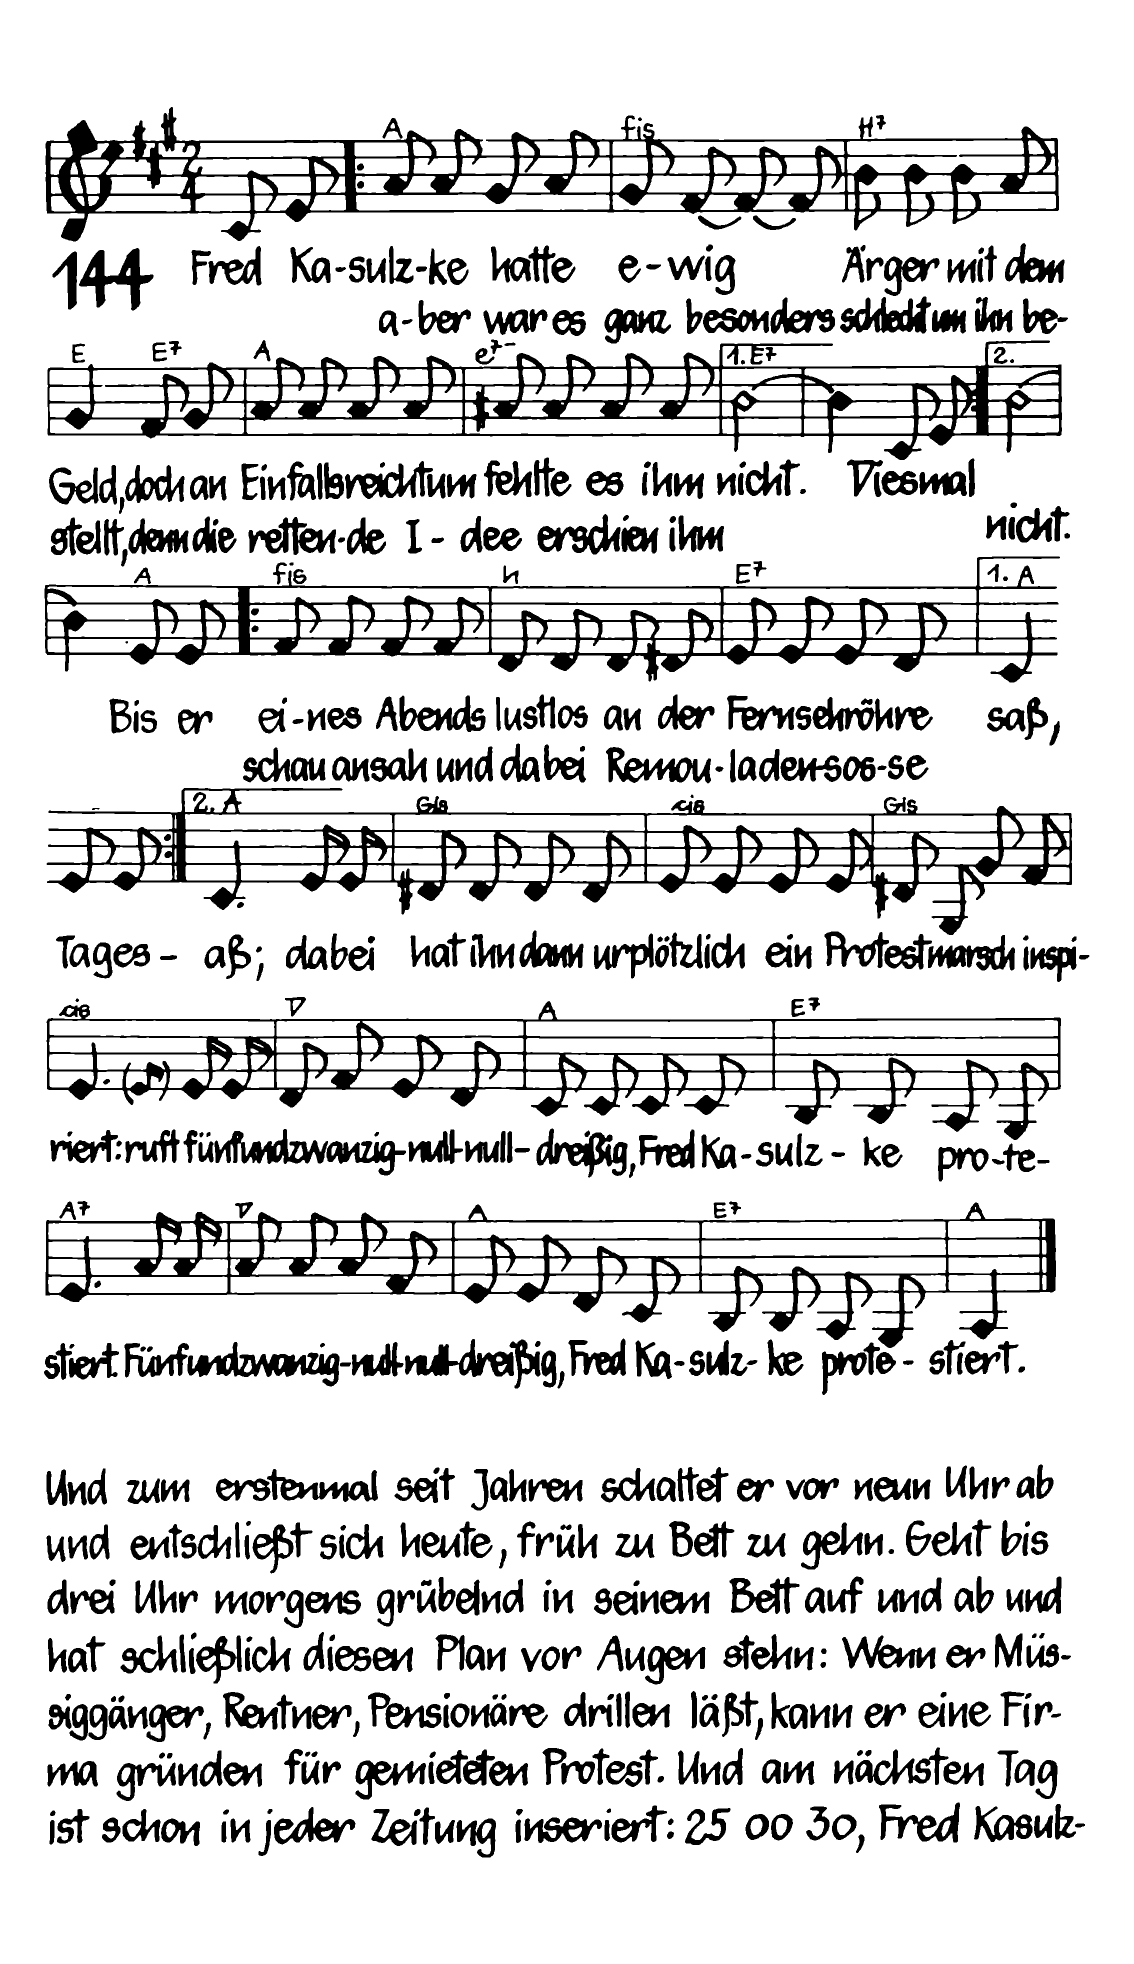 2
4
A fis H7
144 Fred Ka-sulz-ke hatte e-wig Ärger mit dem
a-ber war es ganz besonders schlecht um ihn be-
E E7 A e7- 1. E7 2.
Geld, doch an Einfallsreichtum fehlte es ihm nicht. Diesmal
stellt, denn die retten-de I-dee erschien ihm nicht.
A fis h E7 1. A
Bis er ei-nes Abends lustlos an der Fernsehröhre saß,
schau ansah und dabei Remou-laden-sos-se
2. A Gis cis Gis
Tages- aß; dabei hat ihn dann urplötzlich ein Protestmarsch inspi-
cis D A E7
riert: ruft fünfundzwanzig-null-null-dreißig, Fred Ka-sulz-ke pro-te-
A7 D A E7 A
stiert. Fünfundzwanzig-null-null-dreißig, Fred Ka-sulz-ke prote-stiert.
Und zum erstenmal seit Jahren schaltet er vor neun Uhr ab
und entschließt sich heute, früh zu Bett zu gehn. Geht bis
drei Uhr morgens grübelnd in seinem Bett auf und ab und
hat schließlich diesen Plan vor Augen stehn: Wenn er Müs-
siggänger, Rentner, Pensionäre drillen läßt, kann er eine Fir-
ma gründen für gemieteten Protest. Und am nächsten Tag
ist schon in jeder Zeitung inseriert: 25 00 30, Fred Kasulz-